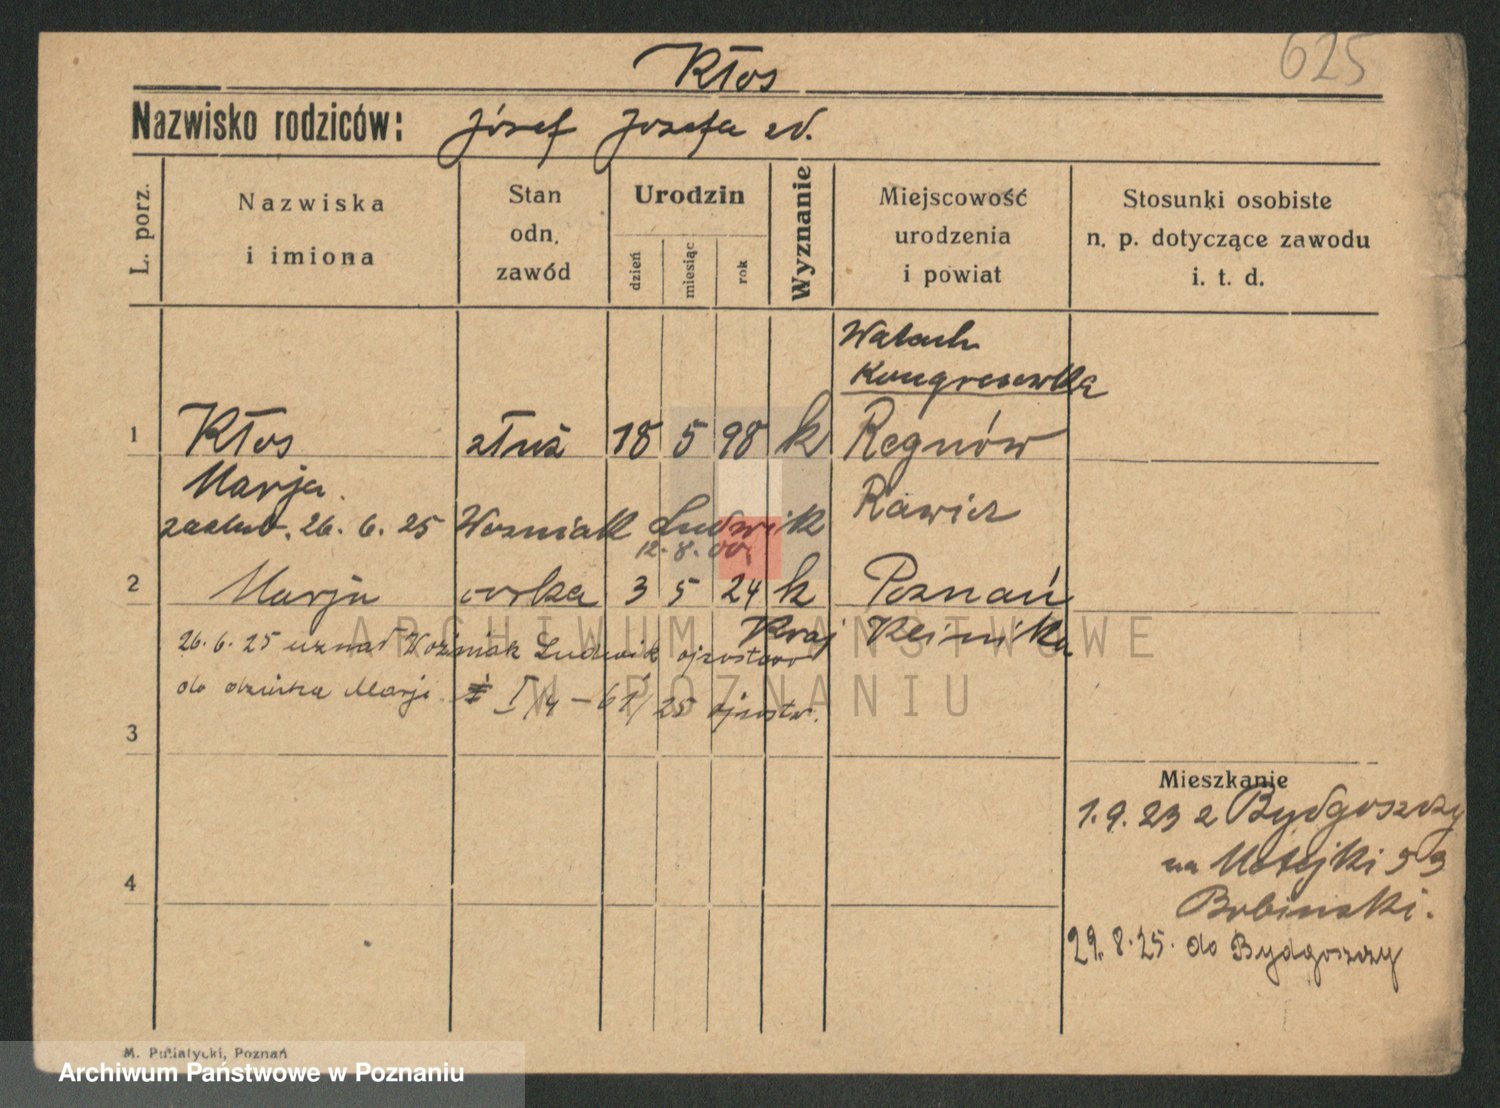 625
Kłos
Nazwisko rodziców: Józef Józefa zd.
L. porz.
Nazwiska i imiona
Stan odn. zawód
Urodzin
dzień miesiąc rok
Wyznanie
Miejscowość urodzenia i powiat
Stosunki osobiste n. p. dotyczące zawodu i. t. d.
Kongresówka
1 Kłos służ 18 5 98 k Regnów
Marja. Rawicz
zaślub. 26. 6. 25 Wozniak Ludwik
12. 8. 00.
2 Marja córka 3 5 24 k Poznań
Kraj Klinika
26. 6. 25 uznał Woźniak Ludwik ojcostwo
do dziecka Marji I/4 - 61/25 ojcostw.
3
Mieszkanie
1. 9. 23 z Bydgoszczy
na Matejki 53
Bobinski.
4
29. 8. 25. do Bydgoszczy
M. Putiatycki, Poznań
ARCHIWUM PAŃSTWOWE
W POZNANIU
Archiwum Państwowe w Poznaniu